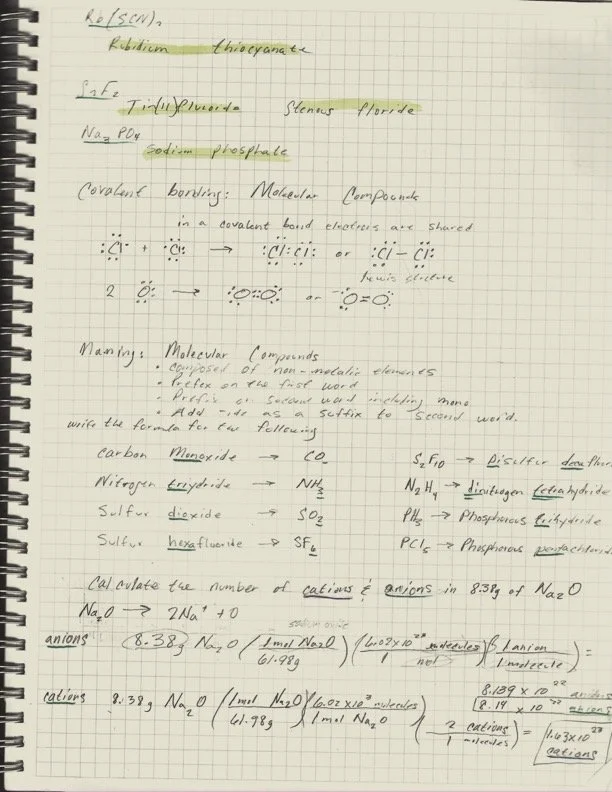 Rb(SCN)₂
Rubidium thiocyanate
SnF₂
Tin(II)fluoride Stenous floride
Na₃PO₄
Sodium phosphate
Covalent bonding: Molecular Compounds
in a covalent bond electrons are shared
:Cl· + ·Cl: → :Cl:Cl: or :Cl–Cl:
Lewis structure
2 O: → :O::O: or O=O
Naming: Molecular Compounds
• composed of non-metalic elements
• Prefex on the first word
• Prefix on second word including mono
• Add -ide as a suffix to second word.
write the formula for the following
Carbon Monoxide → CO S₂F₁₀ → Disulfur decafluor
Nitrogen triydride → NH₃ N₂H₄ → dinitrogen tetrahydride
Sulfur dioxide → SO₂ PH₃ → Phosphorous trihydride
Sulfur hexafluoride → SF₆ PCl₅ → Phosphorous pentachlorid
Calculate the number of cations & anions in 8.38g of Na₂O
Na₂O → 2Na⁺ + O
anions 8.38g Na₂O (1 mol Na₂O / 61.98g) (6.02 x 10²³ molecules / 1 mol) (1 anion / 1 molecule) =
8.139 x 10²² anions
8.14 x 10²² anions
cations 8.38g Na₂O (1 mol Na₂O / 61.98g) (6.02 x 10³ molecules / 1 mol Na₂O) (2 cations / 1 molecules) = 1.63x10²³ cations